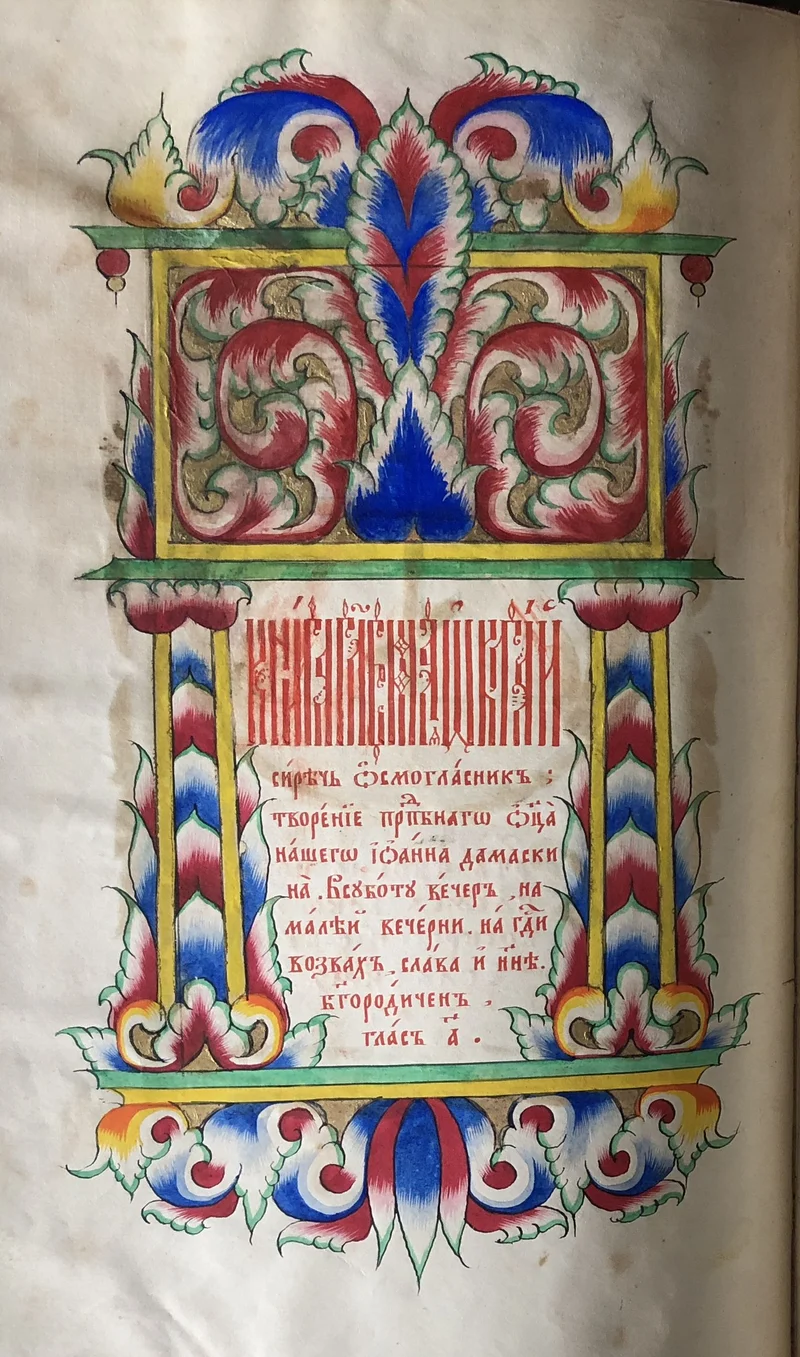 си́рѣчь Ѻ҆смогла́сникъ ;
творе́нїе прпⷣбнагѡ ѻ҆ц҃а̀
на́шегѡ іѡа́нна дамаски
на̀ . Всубо́ту ве́черъ , на
ма́лѣй вече́рни . на́ гд҃и
возва́хъ , сла́ва и҆ нн҃ѣ .
бг҃оро́диченъ ,
гла́съ а҃ .